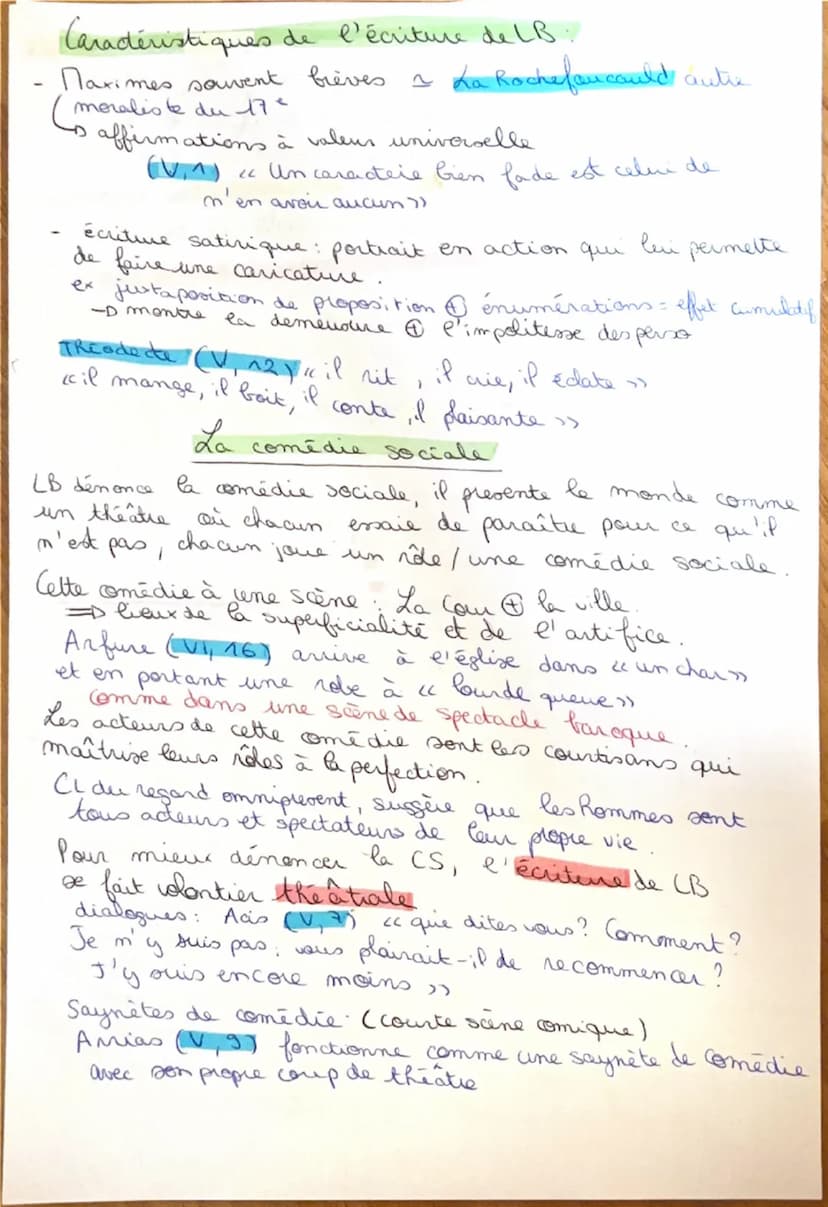 Caractéristiques de l'écriture de LB :
- Maximes souvent brèves ≃ La Rochefoucauld autre
moraliste du 17e
↳ affirmations à valeur universelle
(V, 1) « Un caractère bien fade est celui de
n'en avoir aucun »
- écriture satirique : portrait en action qui lui permette
de faire une caricature.
ex juxtaposition de proposition ⊕ énumérations = effet cumulatif
→ montre la démesure ⊕ l'impolitesse des perso
Théodecte (V, 12) « il rit, il crie, il éclate »
« il mange, il boit, il conte, il plaisante »
La comédie sociale
LB dénonce la comédie sociale, il présente le monde comme
un théâtre où chacun essaie de paraître pour ce qu'il
n'est pas, chacun joue un rôle / une comédie sociale.
Cette comédie à une scène : La Cour ⊕ la ville.
⇒ lieux de la superficialité et de l'artifice.
Arfure (VI, 16) arrive à l'église dans « un char »
et en portant une robe à « lourde queue »
comme dans une scène de spectacle baroque.
Les acteurs de cette comédie sont les courtisans qui
maîtrise leurs rôles à la perfection.
CL du regard omniprésent, suggère que les hommes sont
tous acteurs et spectateurs de leur propre vie.
Pour mieux dénoncer la CS, l'écriture de LB
se fait volontier théâtrale
dialogues : Acis (V, 7) « que dites vous ? Comment ?
Je n'y suis pas ; vous plairait-il de recommencer ?
J'y suis encore moins »
Saynètes de comédie (courte scène comique)
Arrias (V, 9) fonctionne comme une saynète de comédie
avec son propre coup de théâtre